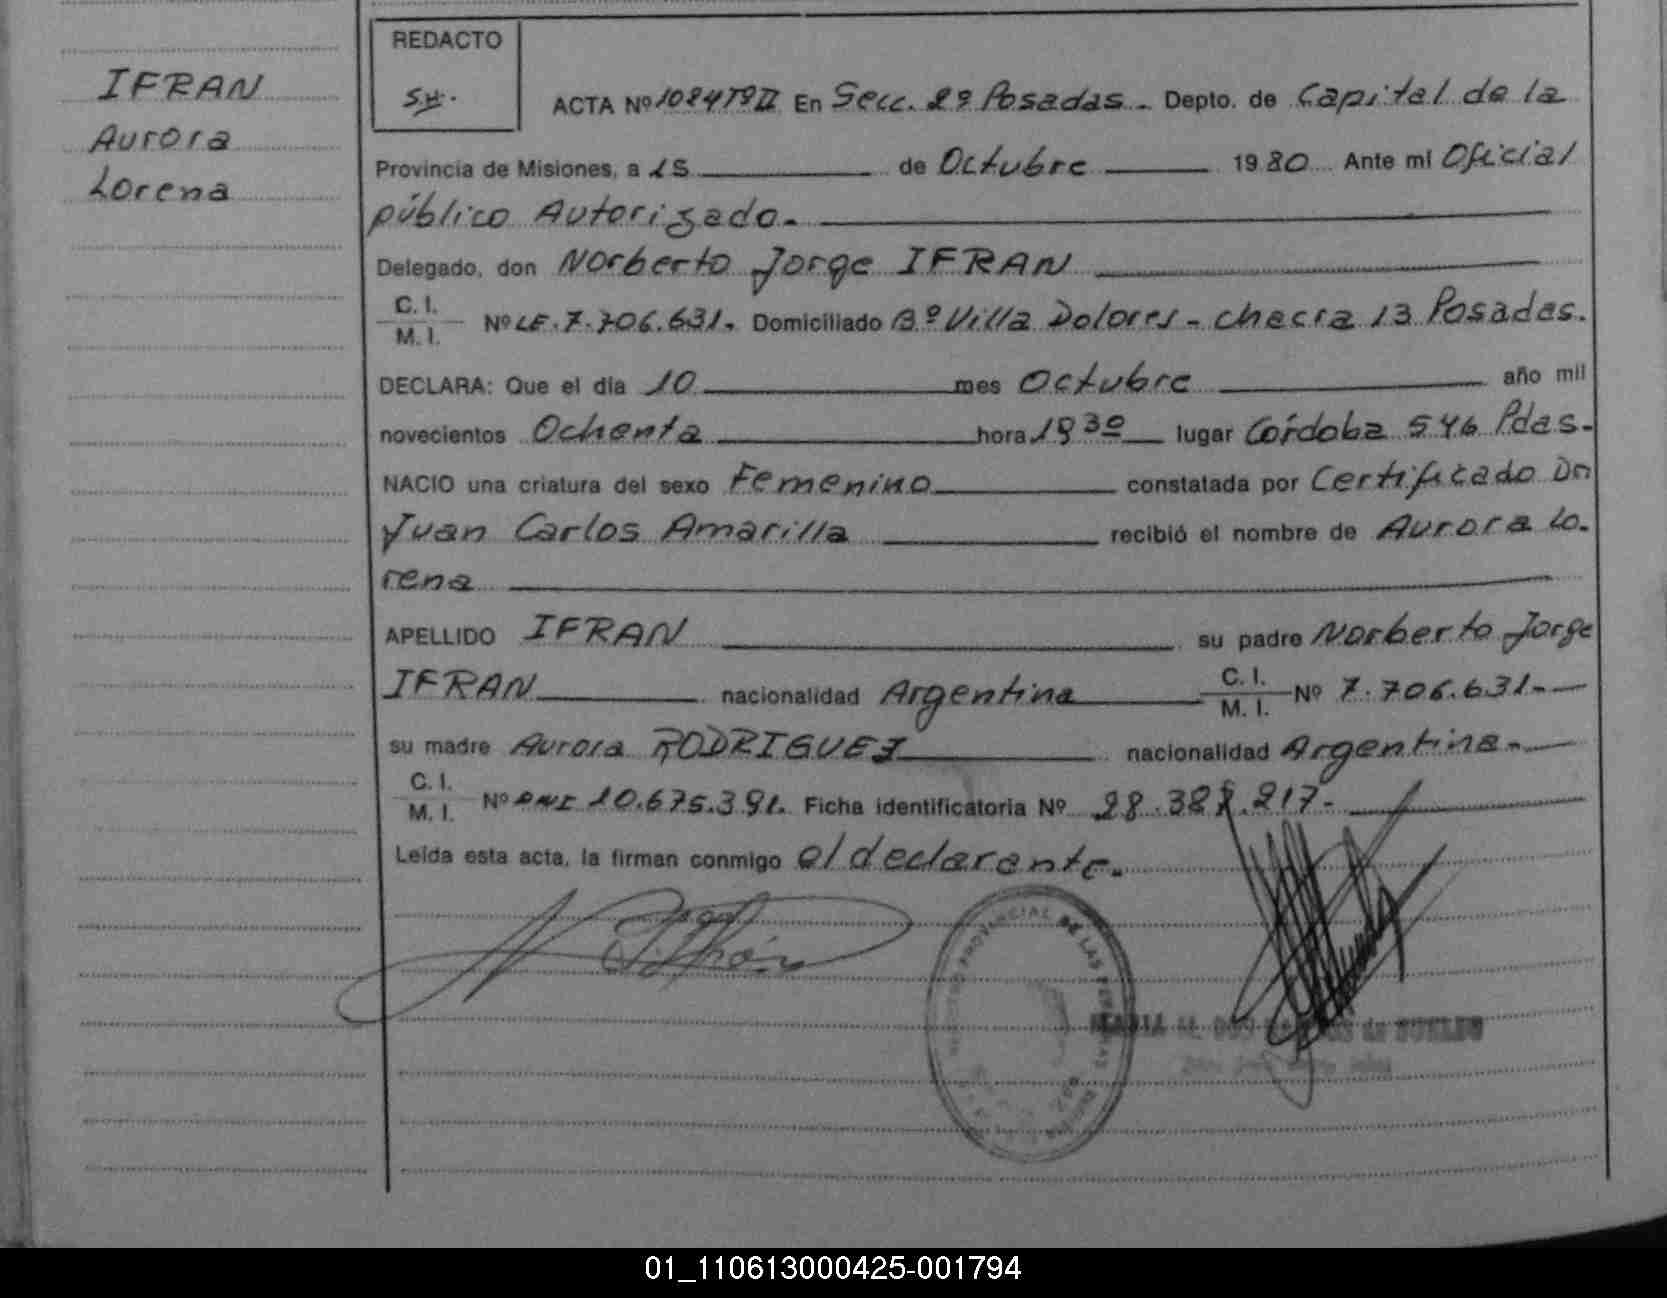 IFRAN
Aurora
Lorena
REDACTO
ACTA Nº 1024 Tº II En Secc. 2º Posadas. Depto. de Capital de la
Provincia de Misiones, a 15 de Octubre 1980 Ante mi Oficial
público Autorizado.
Delegado, don Norberto Jorge IFRAN
C. I.
M. I.
Nº LE. 7.706.631. Domiciliado Bº Villa Dolores - chacra 13 Posadas.
DECLARA: Que el día 10 mes Octubre año mil
novecientos Ochenta hora 19 30 lugar Córdoba 546 Pdas.
NACIO una criatura del sexo Femenino constatada por Certificado Dn
Juan Carlos Amarilla recibió el nombre de Aurora Lo.
rena
APELLIDO IFRAN su padre Norberto Jorge
IFRAN nacionalidad Argentina C. I. M. I. Nº 7.706.631.
su madre Aurora RODRIGUEZ nacionalidad Argentina.
C. I.
M. I.
Nº DNI 10.675.391. Ficha identificatoria Nº 28.382.217.
Leída esta acta, la firman conmigo el declarante.
PROVINCIAL DE LAS PERSONAS
01_110613000425-001794